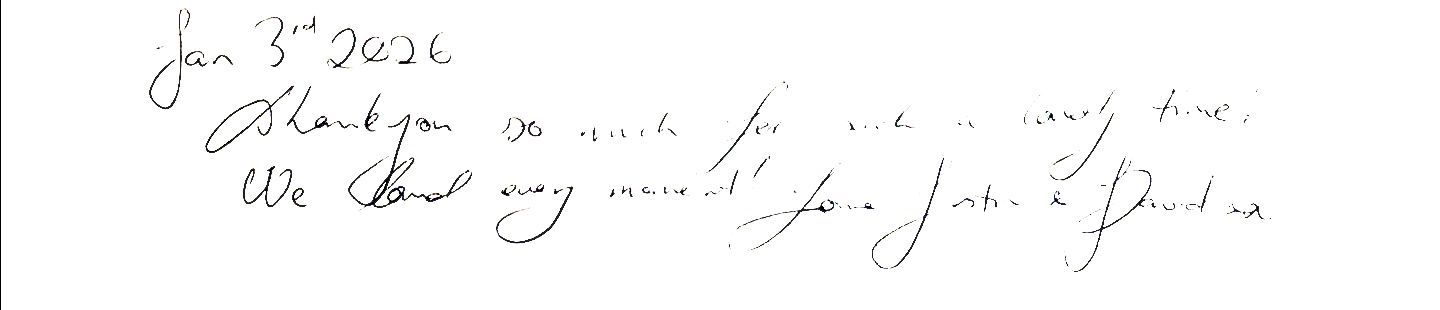 Jan 3rd 2026
Thankyou so much for such a lovely time!
We loved every moment! Love Justin & David xx.